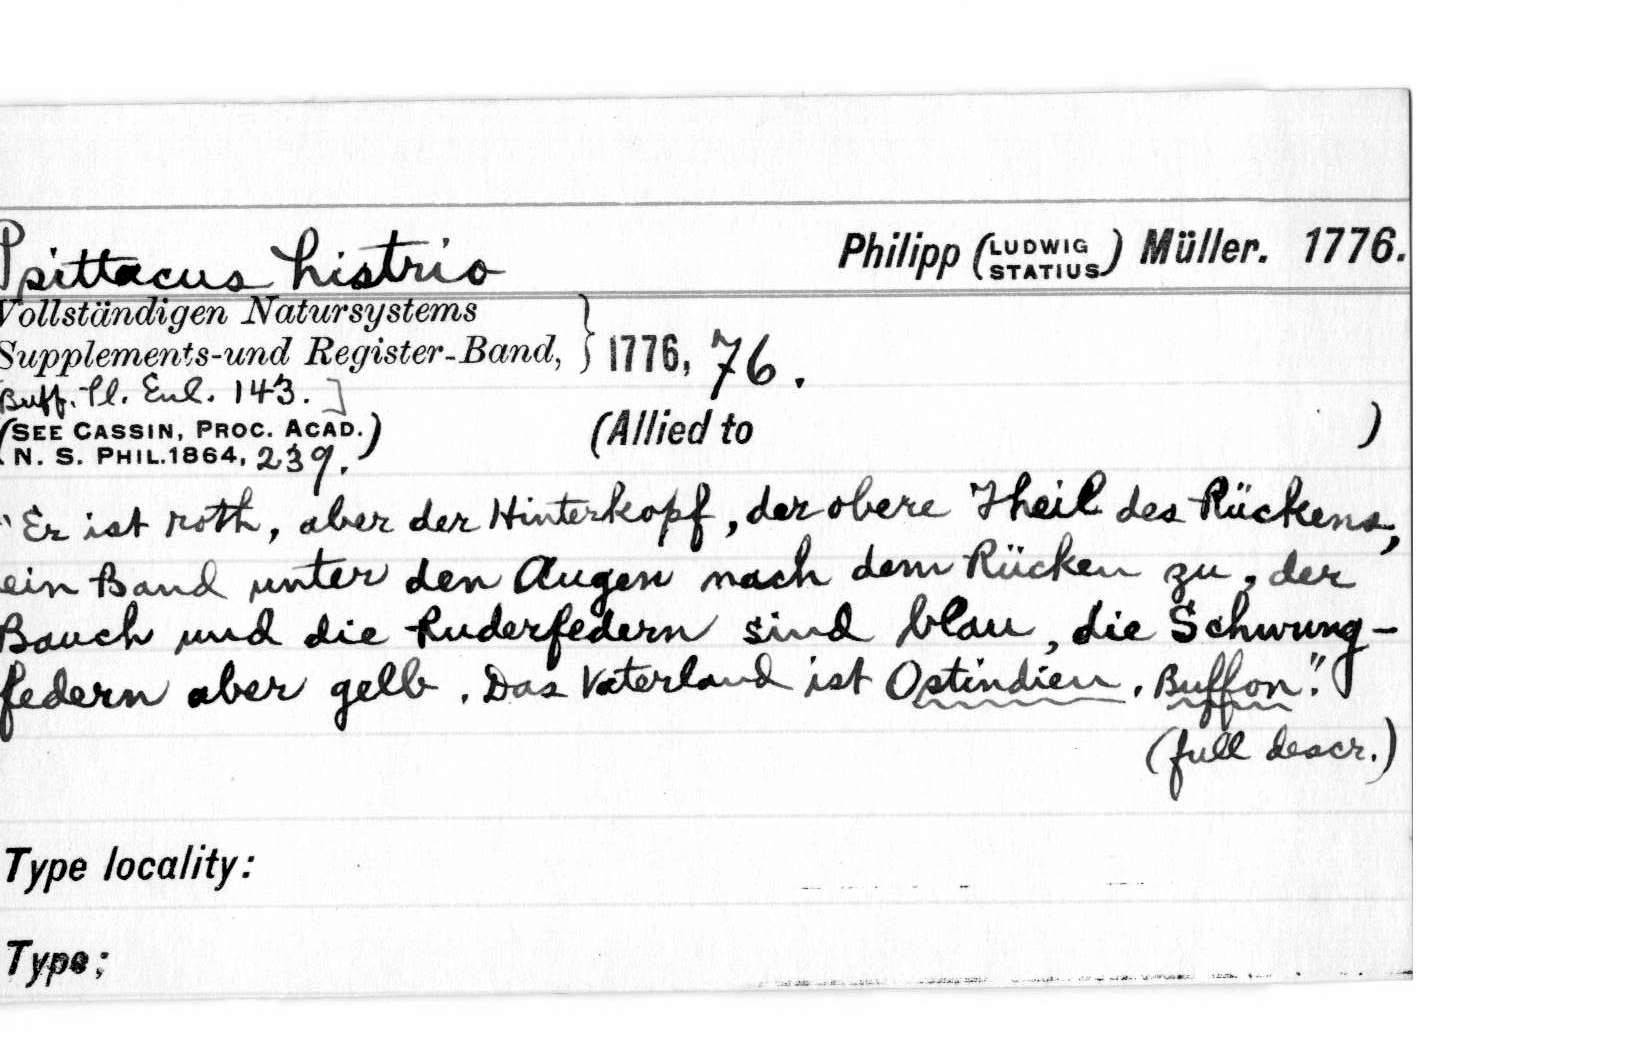 Psittacus histrio Philipp (LUDWIG STATIUS) Müller. 1776.
Vollständigen Natursystems
Supplements-und Register-Band, } 1776, 76.
Buff. Pl. Enl. 143.]
(SEE CASSIN, PROC. ACAD.
N. S. PHIL. 1864, 239.) (Allied to )
"Er ist roth, aber der Hinterkopf, der obere Theil des Rückens,
ein Band unter den Augen nach dem Rücken zu, der
Bauch und die Ruderfedern sind blau, die Schwung-
federn aber gelb. Das Vaterland ist Ostindien. Buffon."
(full descr.)
Type locality:
Type: